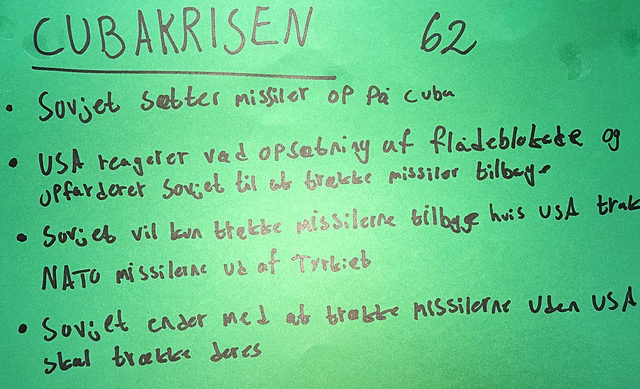 CUBAKRISEN 62
• Sovjet sætter missiler op på cuba
• USA reagerer ved opsætning af flådeblokade og
opfarderer Sovjet til at trække missiler tilbage
• Sovjet vil kun trække missilerne tilbage hvis USA trak
NATO missilerne ud af Tyrkiet
• Sovjet ender med at trække missilerne uden USA
skal trække deres